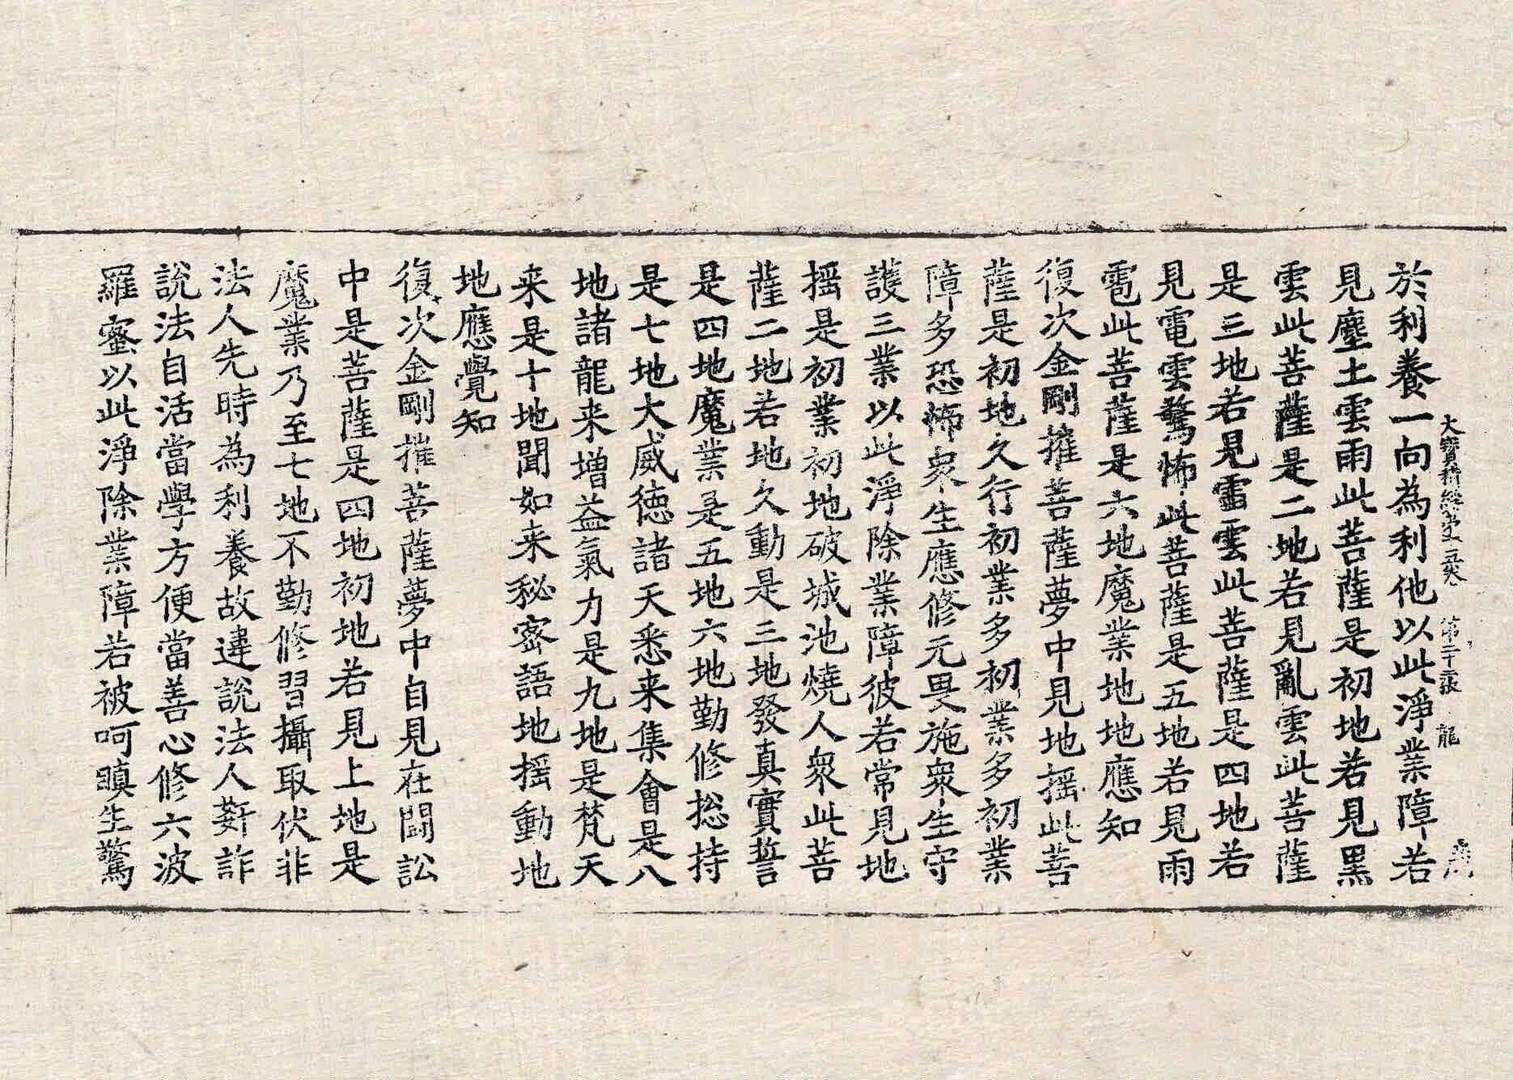 於利養一向為利他以此淨業障若
大寶積經 第二十張 龍
見塵土雲雨此菩薩是初地若見黑
雲此菩薩是二地若見亂雲此菩薩
是三地若見雷雲此菩薩是四地若
見電雲驚怖此菩薩是五地若見雨
雹此菩薩是六地魔業地地應知
復次金剛摧菩薩夢中見地揺此菩
薩是初地久行初業多初業多初業
障多恐怖衆生應修无畏施衆生守
護三業以此淨除業障彼若常見地
揺是初業初地破城池燒人衆此菩
薩二地若地久動是三地發真實誓
是四地魔業是五地六地勤修捴持
是七地大威德諸天悉来集會是八
地諸龍来增益氣力是九地是梵天
来是十地聞如来秘密語地揺動地
地應覺知
復次金剛摧菩薩夢中自見在鬪訟
中是菩薩是四地初地若見上地是
魔業乃至七地不勤修習攝取伏非
法人先時為利養故違說法人姧詐
說法自活當學方便當善心修六波
羅蜜以此淨除業障若被呵瞋生驚